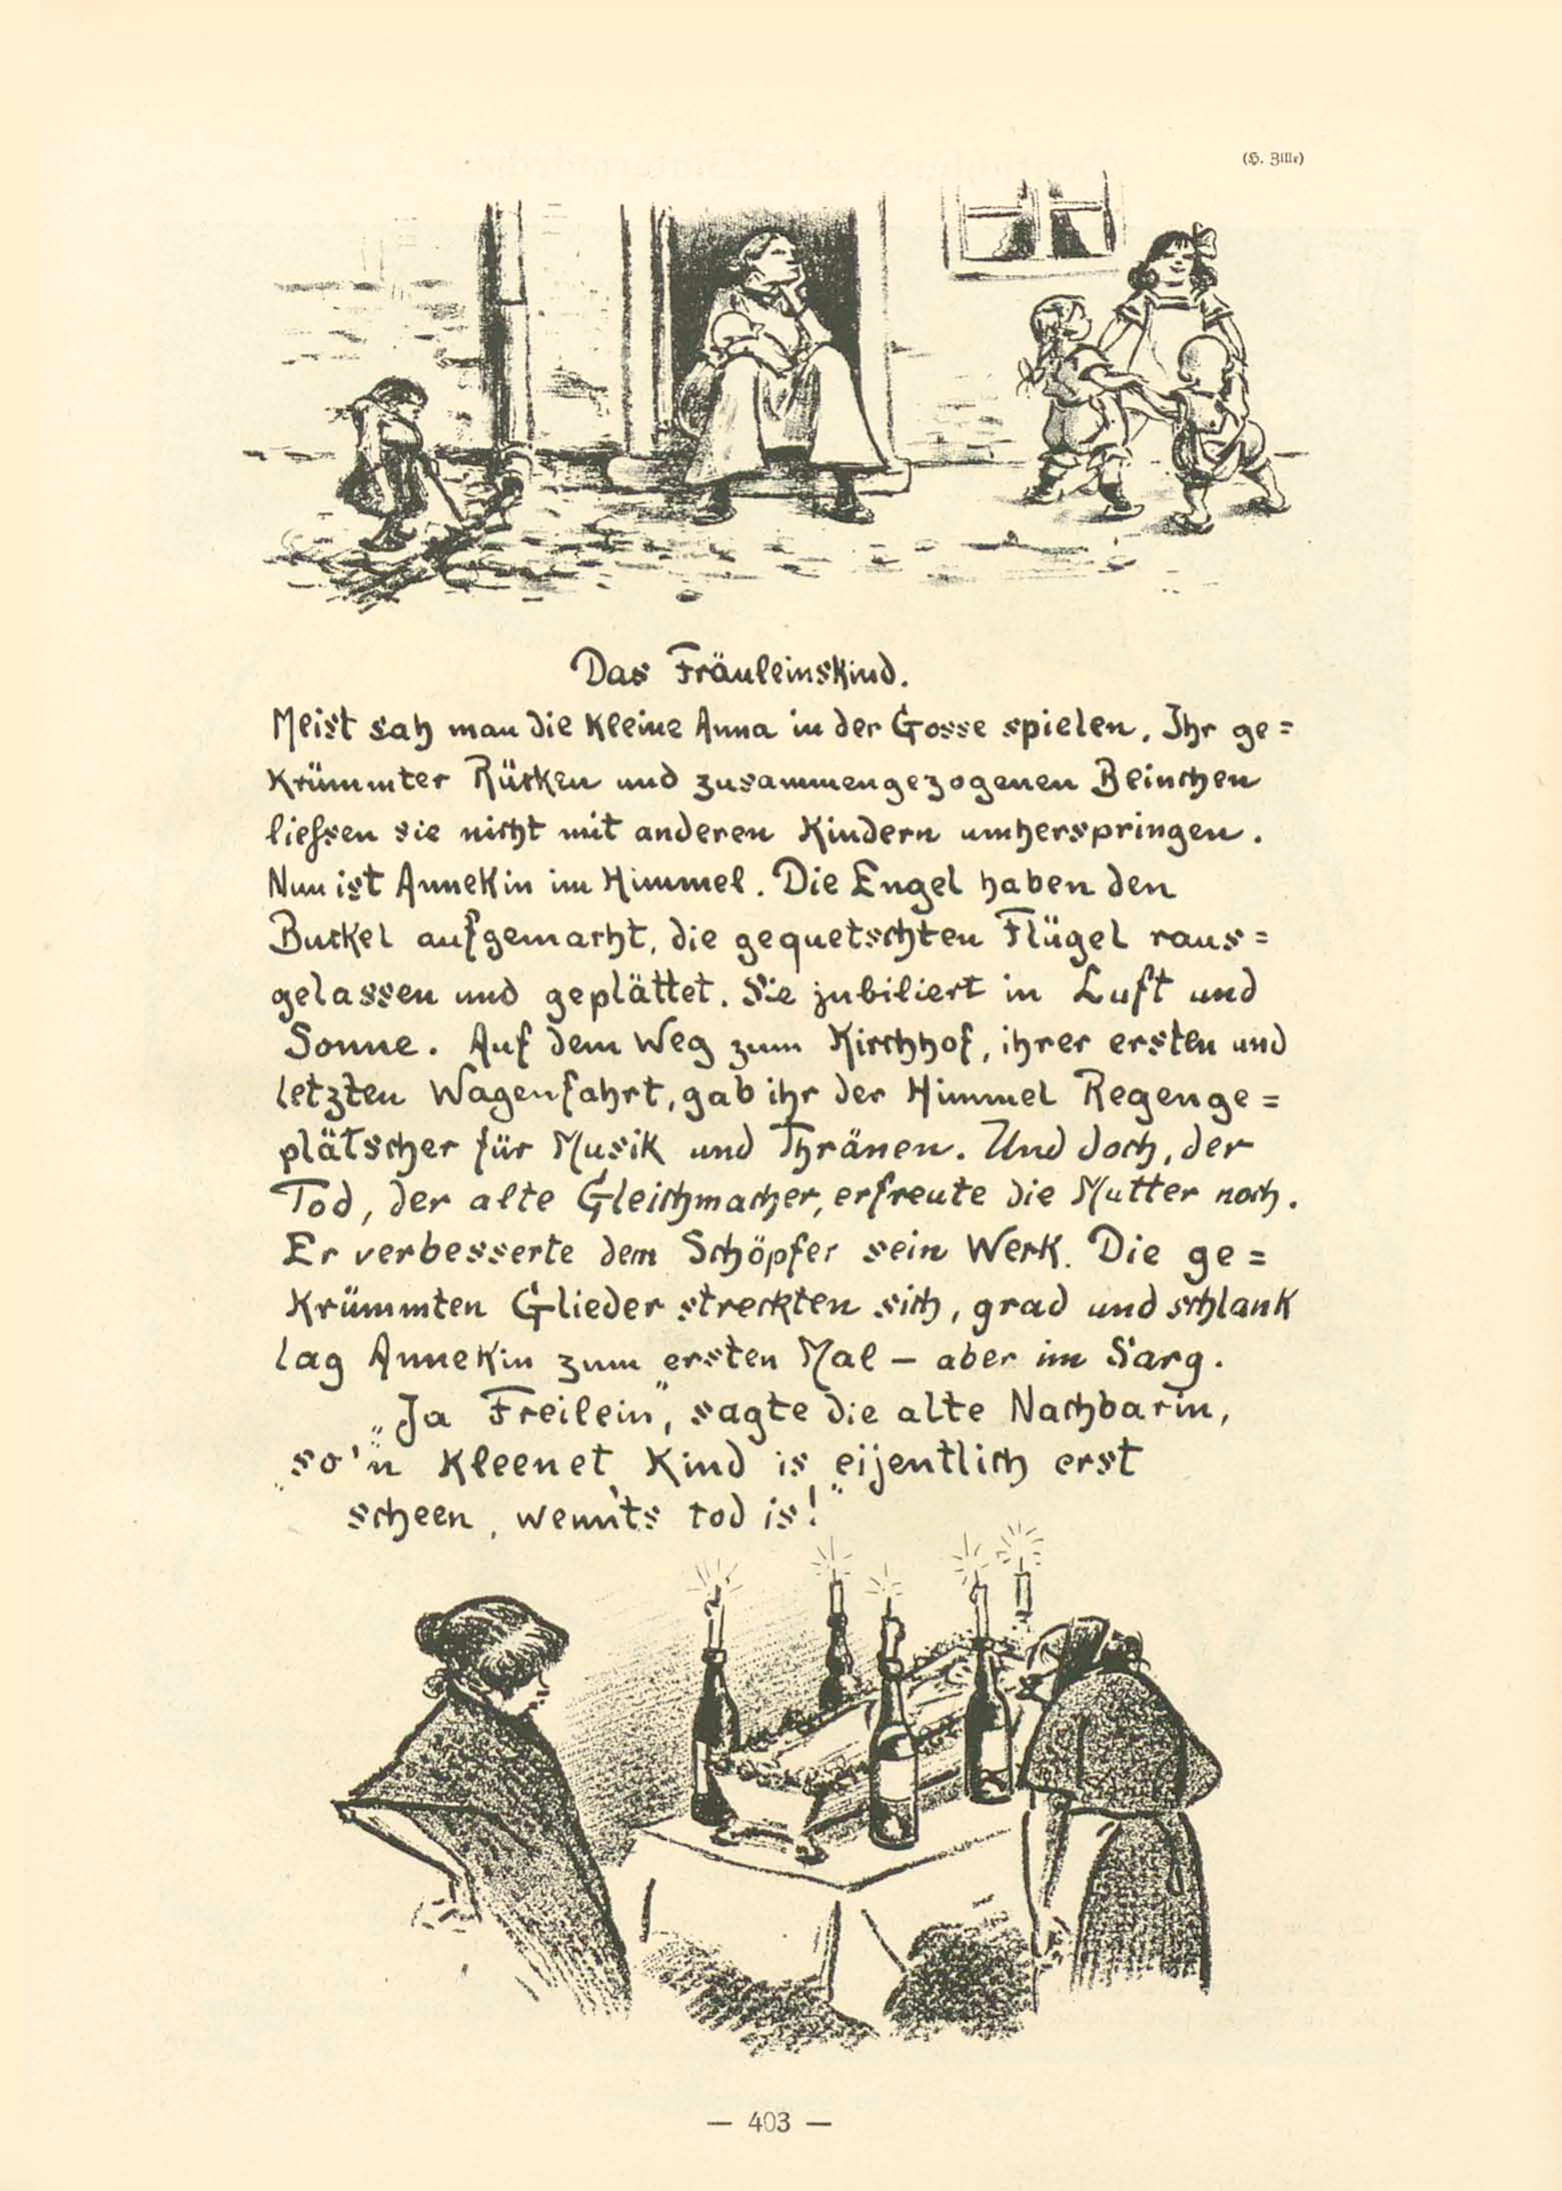 (H. Zille)
Das Fräuleinskind.
Meist sah man die kleine Anna in der Gosse spielen. Ihr ge=
krümmter Rücken und zusammengezogenen Beinchen
liessen sie nicht mit anderen Kindern umherspringen.
Nun ist Annekin im Himmel. Die Engel haben den
Buckel aufgemacht, die gequetschten Flügel raus=
gelassen und geplättet. Sie jubiliert in Luft und
Sonne. Auf dem Weg zum Kirchhof, ihrer ersten und
letzten Wagenfahrt, gab ihr der Himmel Regenge=
plätscher für Musik und Thränen. Und doch, der
Tod, der alte Gleichmacher, erfreute die Mutter noch.
Er verbesserte dem Schöpfer sein Werk. Die ge=
krümmten Glieder streckten sich, grad und schlank
lag Annekin zum ersten Mal – aber im Sarg.
„Ja Freilein", sagte die alte Nachbarin,
„so'n kleenet Kind is eijentlich erst
scheen, wenn'ts tod is!"
— 403 —